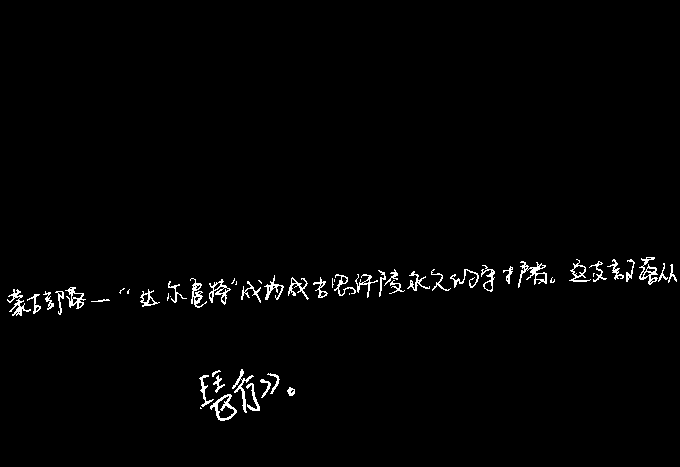 蒙古部落—“达尔扈特”成为成吉思汗陵永久的守护者。这支部落从
琵琶行》。